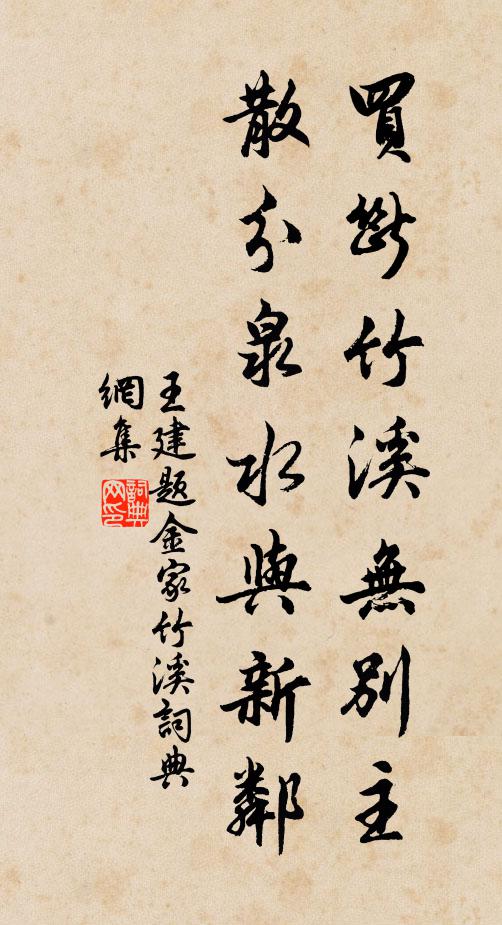 買斷竹溪無別主
散分泉水與新鄰
王建題金家竹溪詞典
網集
詞典網印